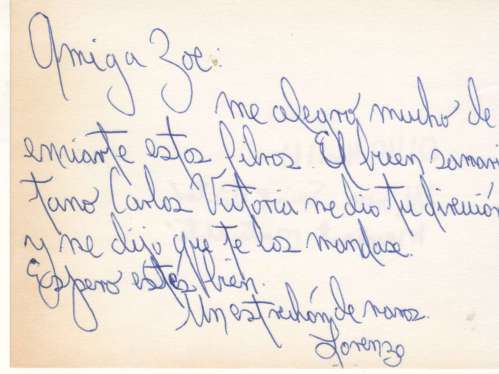 Amiga Zoe:
me alegro mucho de
enviarte estos libros. El buen samari
tano Carlos Victoria me dio tu dirección
y me dijo que te los mandase.
Espero estés bien.
Un estrechón de manos.
Lorenzo